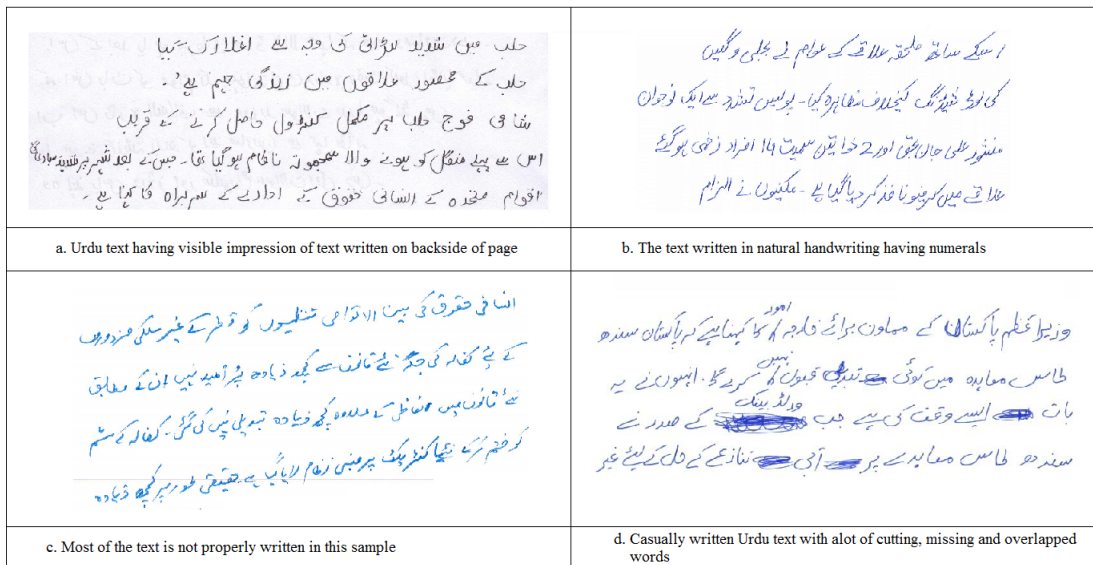 حلب میں شدید لڑائی کی وجہ سے انخلا رک گیا
حلب کے محصور علاقوں میں زندگی جہنم ہے۔
شامی فوج حلب پر مکمل کنٹرول حاصل کرنے کے قریب
اس سے پہلے منگل کو ہونے والا سمجھوتہ ناکام ہوگیا تھا۔ جس کے بعد شہر پر شدید
اقوام متحدہ کے انسانی حقوق کے ادارے کے سربراہ کا کہنا ہے۔
a. Urdu text having visible impression of text written on backside of page
اسکے ساتھ ملحقہ علاقے کے عوام نے بجلی و گیس
کی لوڈ شیڈنگ کیخلاف مظاہرہ کیا۔ پولیس تشدد سے ایک نوجوان
منظور علی جاں بحق اور 2 خواتین سمیت 14 افراد زخمی ہوگئے
علاقے میں کرفیو نافذ کر دیا گیا ہے۔ مکینوں نے الزام
b. The text written in natural handwriting having numerals
انسانی حقوق کی بین الاقوامی تنظیموں کو قطر کے غیر ملکی مزدوروں
کے لئے کفالہ کی جگہ نئے قانون سے کچھ زیادہ پر امید نہیں ان کے مطابق
نئے قانون میں الفاظ کے علاوہ کچھ زیادہ تبدیلی نہیں کی گئی۔ کفالہ سسٹم
کو ختم کرکے نیا کنٹریکٹ پر مبنی نظام لایا گیا ہے حقیقی طور پر کچھ زیادہ
c. Most of the text is not properly written in this sample
وزیراعظم پاکستان کے معاون برائے خارجہ امور کا کہنا ہے کہ پاکستان سندھ
طاس معاہدہ میں کوئی تبدیلی قبول نہیں کرے گا۔ انہوں نے یہ
بات ایسے وقت کی ہے جب ورلڈ بینک کے صدر نے
سندھ طاس معاہدے پر آبی تنازعے کے حل کے لیئے غیر
d. Casually written Urdu text with alot of cutting, missing and overlapped
words